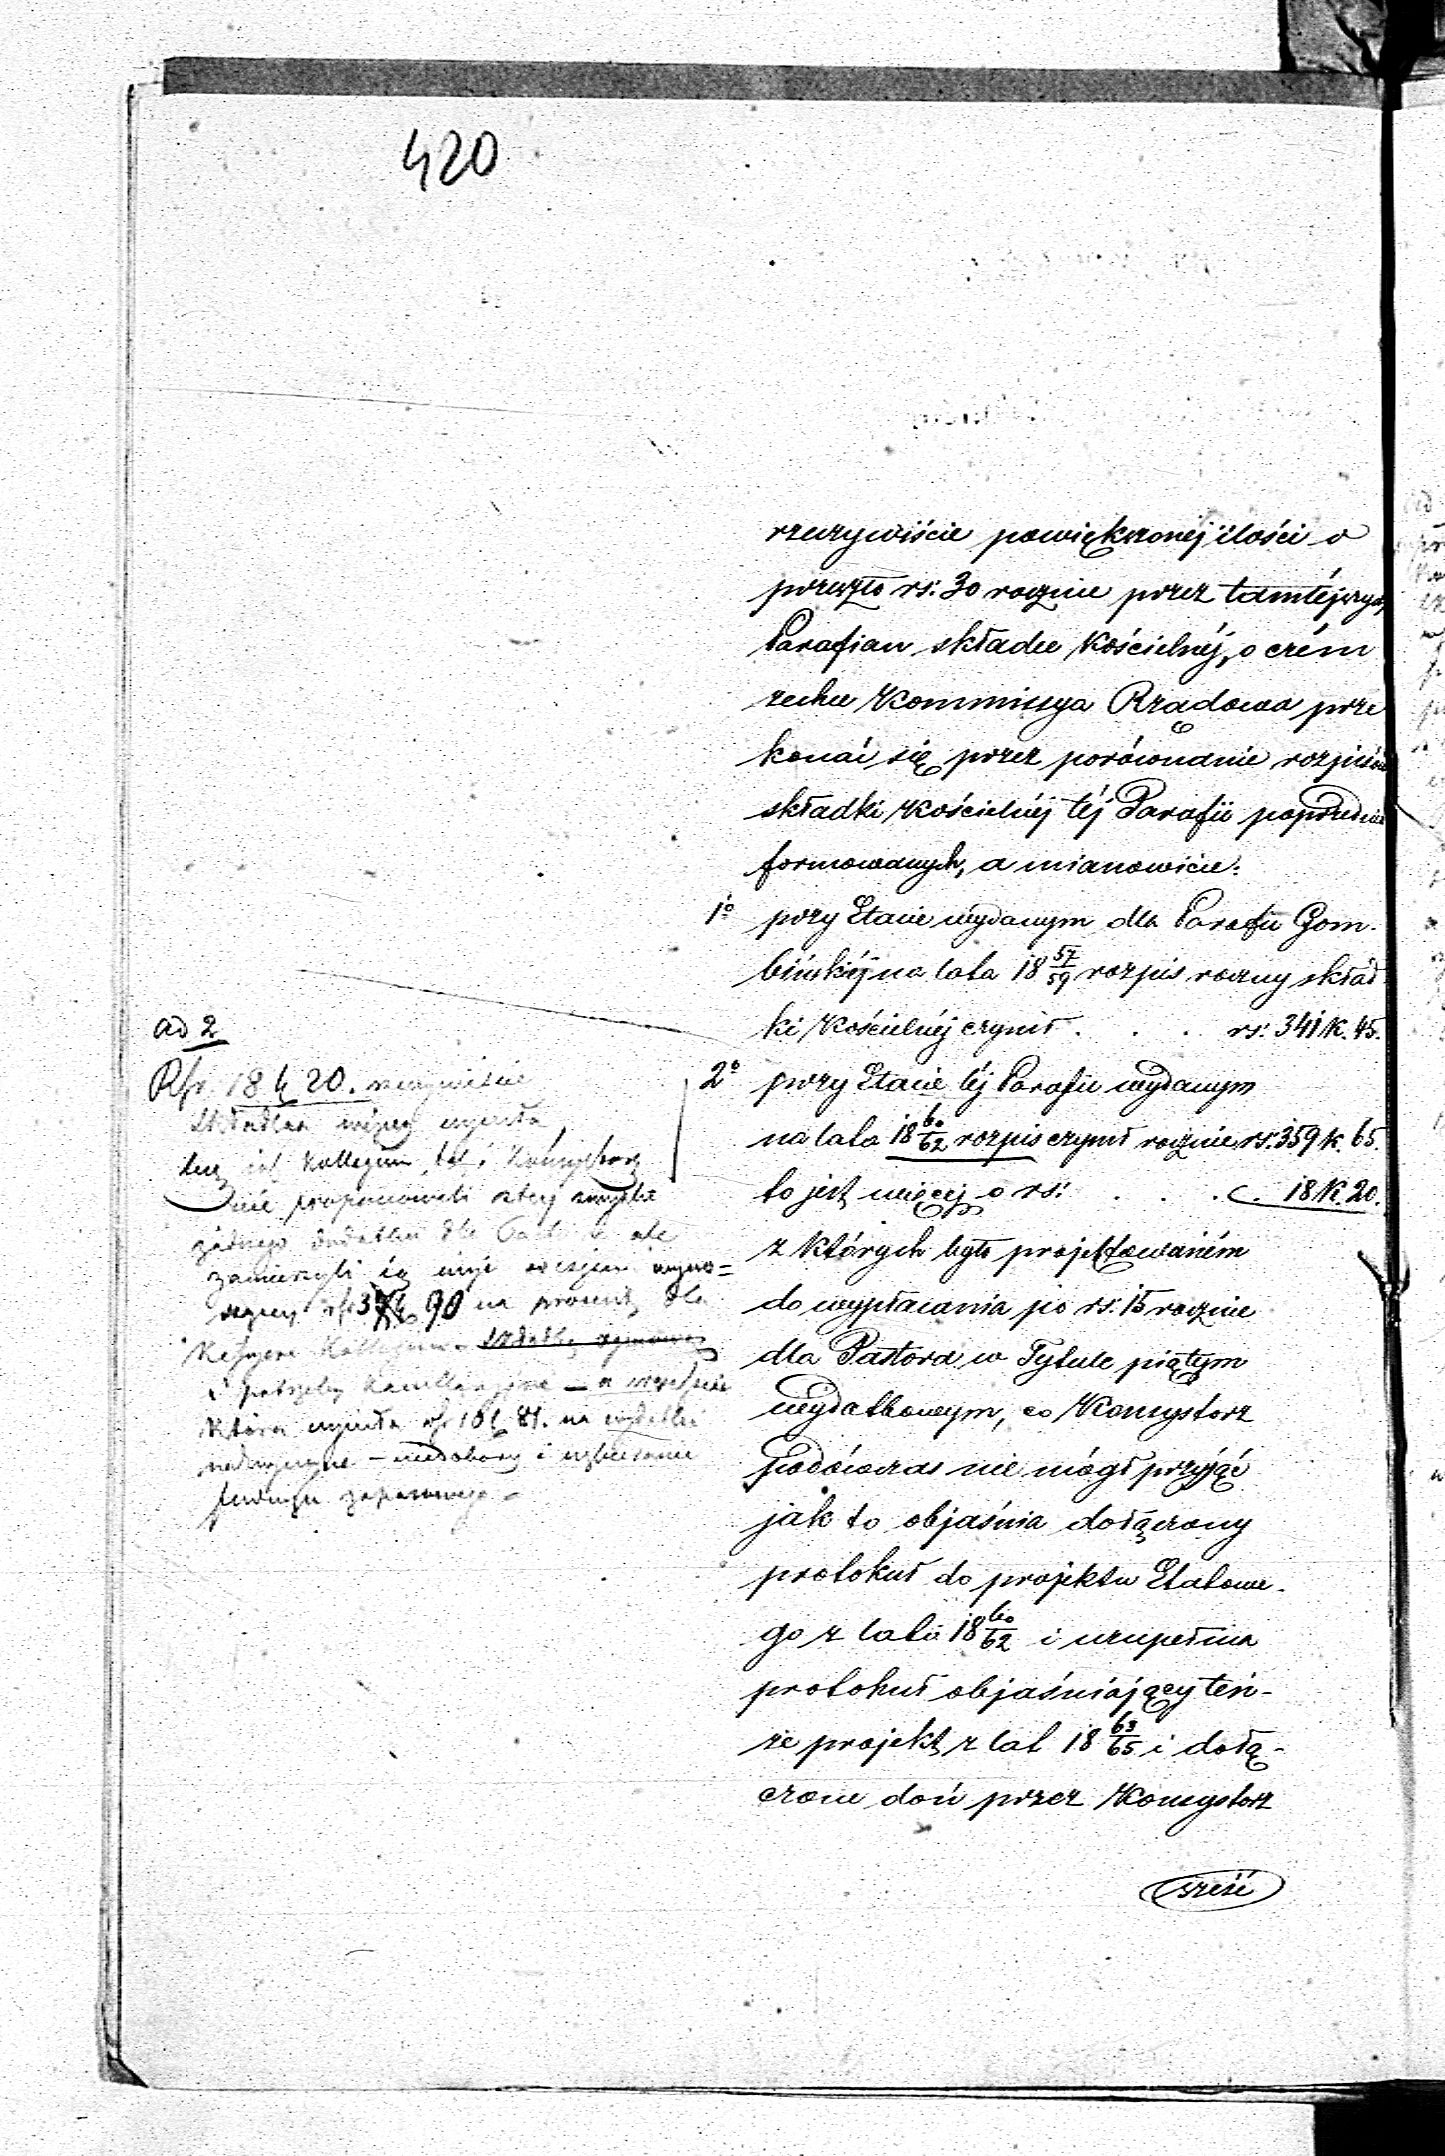 420
rzeczywiście powiększonéj ilości o
przeszło rs: 30 rocznie przez tamtéjszych
Parafian składce Kościelnéj, o czém
zechce Kommissya Rządowa prze
konać się przez porównanie rozpisów
składki Kościelnéj téj Parafii poprzednio
formowanych, a mianowicie:
1o przy Etacie wydanym dla Parafii Gom-
bińskiéj na lata 18 57/59 rozpis roczny skład
ki Kościelnéj czynił . . . rs: 341 k. 45.
2o przy Etacie téj Parafii wydanym
na lata 18 60/62 rozpis czynił rocznie rs. 359 k. 65.
to jest więcej o rs: . . . 18 k. 20.
z których było projektowaném
do wypłacania po rs. 15 rocznie
dla Pastora w Tytule piątym
wydatkowym, co Konsystorz
podówczas nie mógł przyjąć
jak to objaśnia dołączony
protokuł do projektu Etatowe-
go z lata 18 60/62 i uzupełnia
protokuł objaśniający ten-
że projekt z lat 18 63/65 i dołą-
czone doń przez Konsystorz
sześć
ad 2
Rsr. 18 k 20. rzeczywiście
Składka więcej wynosła
lecz jak Kollegium tak i Konsystorz
nie proponowali
żadnego dodatku dla ale
zamierzyli
90 na procent dla
Kassyera Kollegium
i potrzeby kancellaryjne
która wyniosła rsr 18 k 81. na wydatki
nadzwyczajne – niedobory i uzbieranie
funduszu zapasowego –